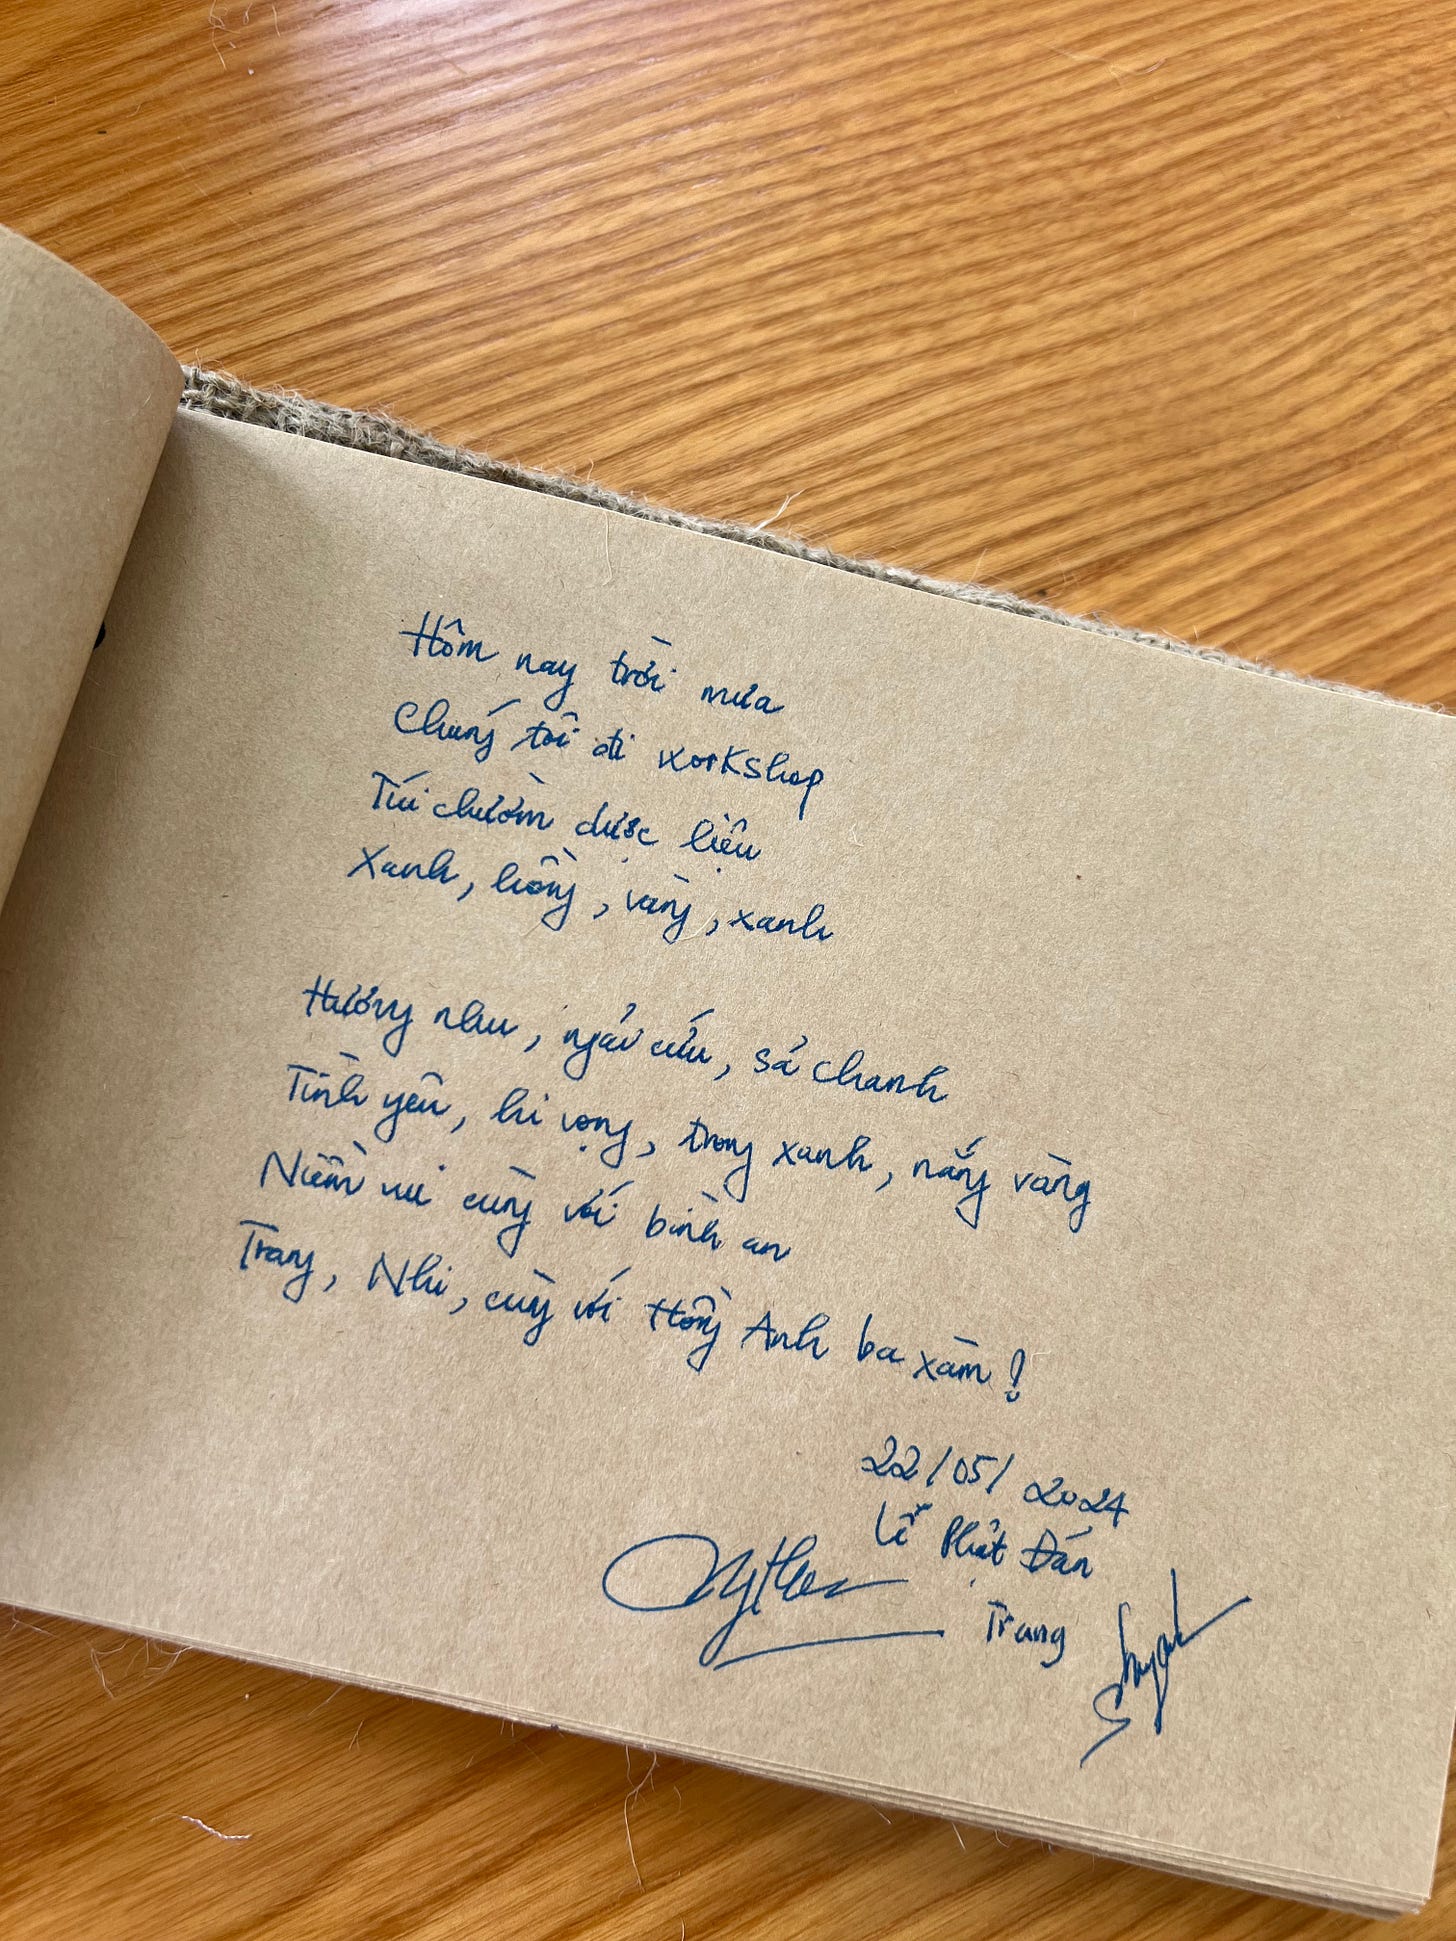 Hôm nay trời mưa
Chúng tôi đi workshop
Túi chườm dược liệu
Xanh, hồng, vàng, xanh
Hương nhu, ngải cứu, sả chanh
Tình yêu, hi vọng, trong xanh, nắng vàng
Niềm vui cùng với bình an
Trang, Nhi, cùng với Hồng Anh ba xàm!
22/05/2024
Lễ Phật Đản
Trang